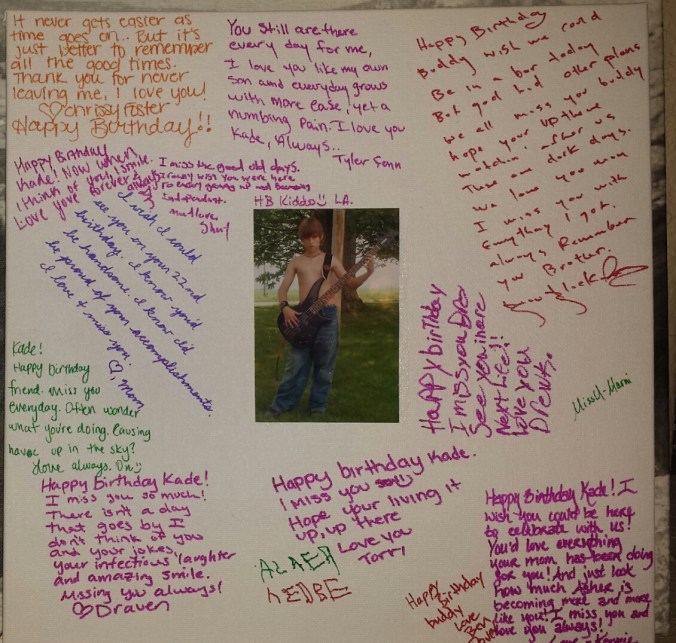 It never gets easier as
time goes on.. But it's
just better to remember
all the good times.
Thank you for never
leaving me, I love you!
♡Chrissy Foster
Happy Birthday!!
You still are there
every day for me,
I love you like my own
son and everyday grows
with more ease, yet a
numbing pain. I love you
Kade, Always..
Tyler Fonn
Happy Birthday
Buddy wish we could
Be in a bar today
But god had other plans
we all miss you buddy
hope your up there
watchin' after us
These are dark days.
we love you man
I miss you with
Everything I got.
always Remember
you Brotur.
Happy Birthday
Kade! Now when
I think of you I smile.
Love you forever &
always
I miss the good old days.
I really wish you were here
to enjoy growing up and becoming
Independent.
much love.
HB Kiddo☺ LA.
I wish I could
see you on your 22nd
birthday. I know you'd
be handsome. I know I'd
be proud of your accomplishments.
I love & miss you.
♡, Mom
Kade!
Happy birthday
friend. miss you
everyday. Often wonder
what you're doing. Causing
havoc up in the sky?
Love always.
Happy birthday
I miss you
See you in here
Next Life!!
Love you
Drews.
Miss U-Marni
Happy birthday Kade!
I miss you so much!
There isn't a day
that goes by I
don't think of you
and your jokes,
your infectious laughter
and amazing smile.
Missing you always!
♡Draven
Happy birthday Kade.
I miss you
Hope your living it
up, up there
Love you
Torri
Happy birthday
buddy
Love
Happy Birthday Kade! I
wish you could be here
to celebrate with us!
You'd love everything
your mom has been doing
for you! And just look
how much Asher is
becoming more and more
like you! I miss you and
love you always!